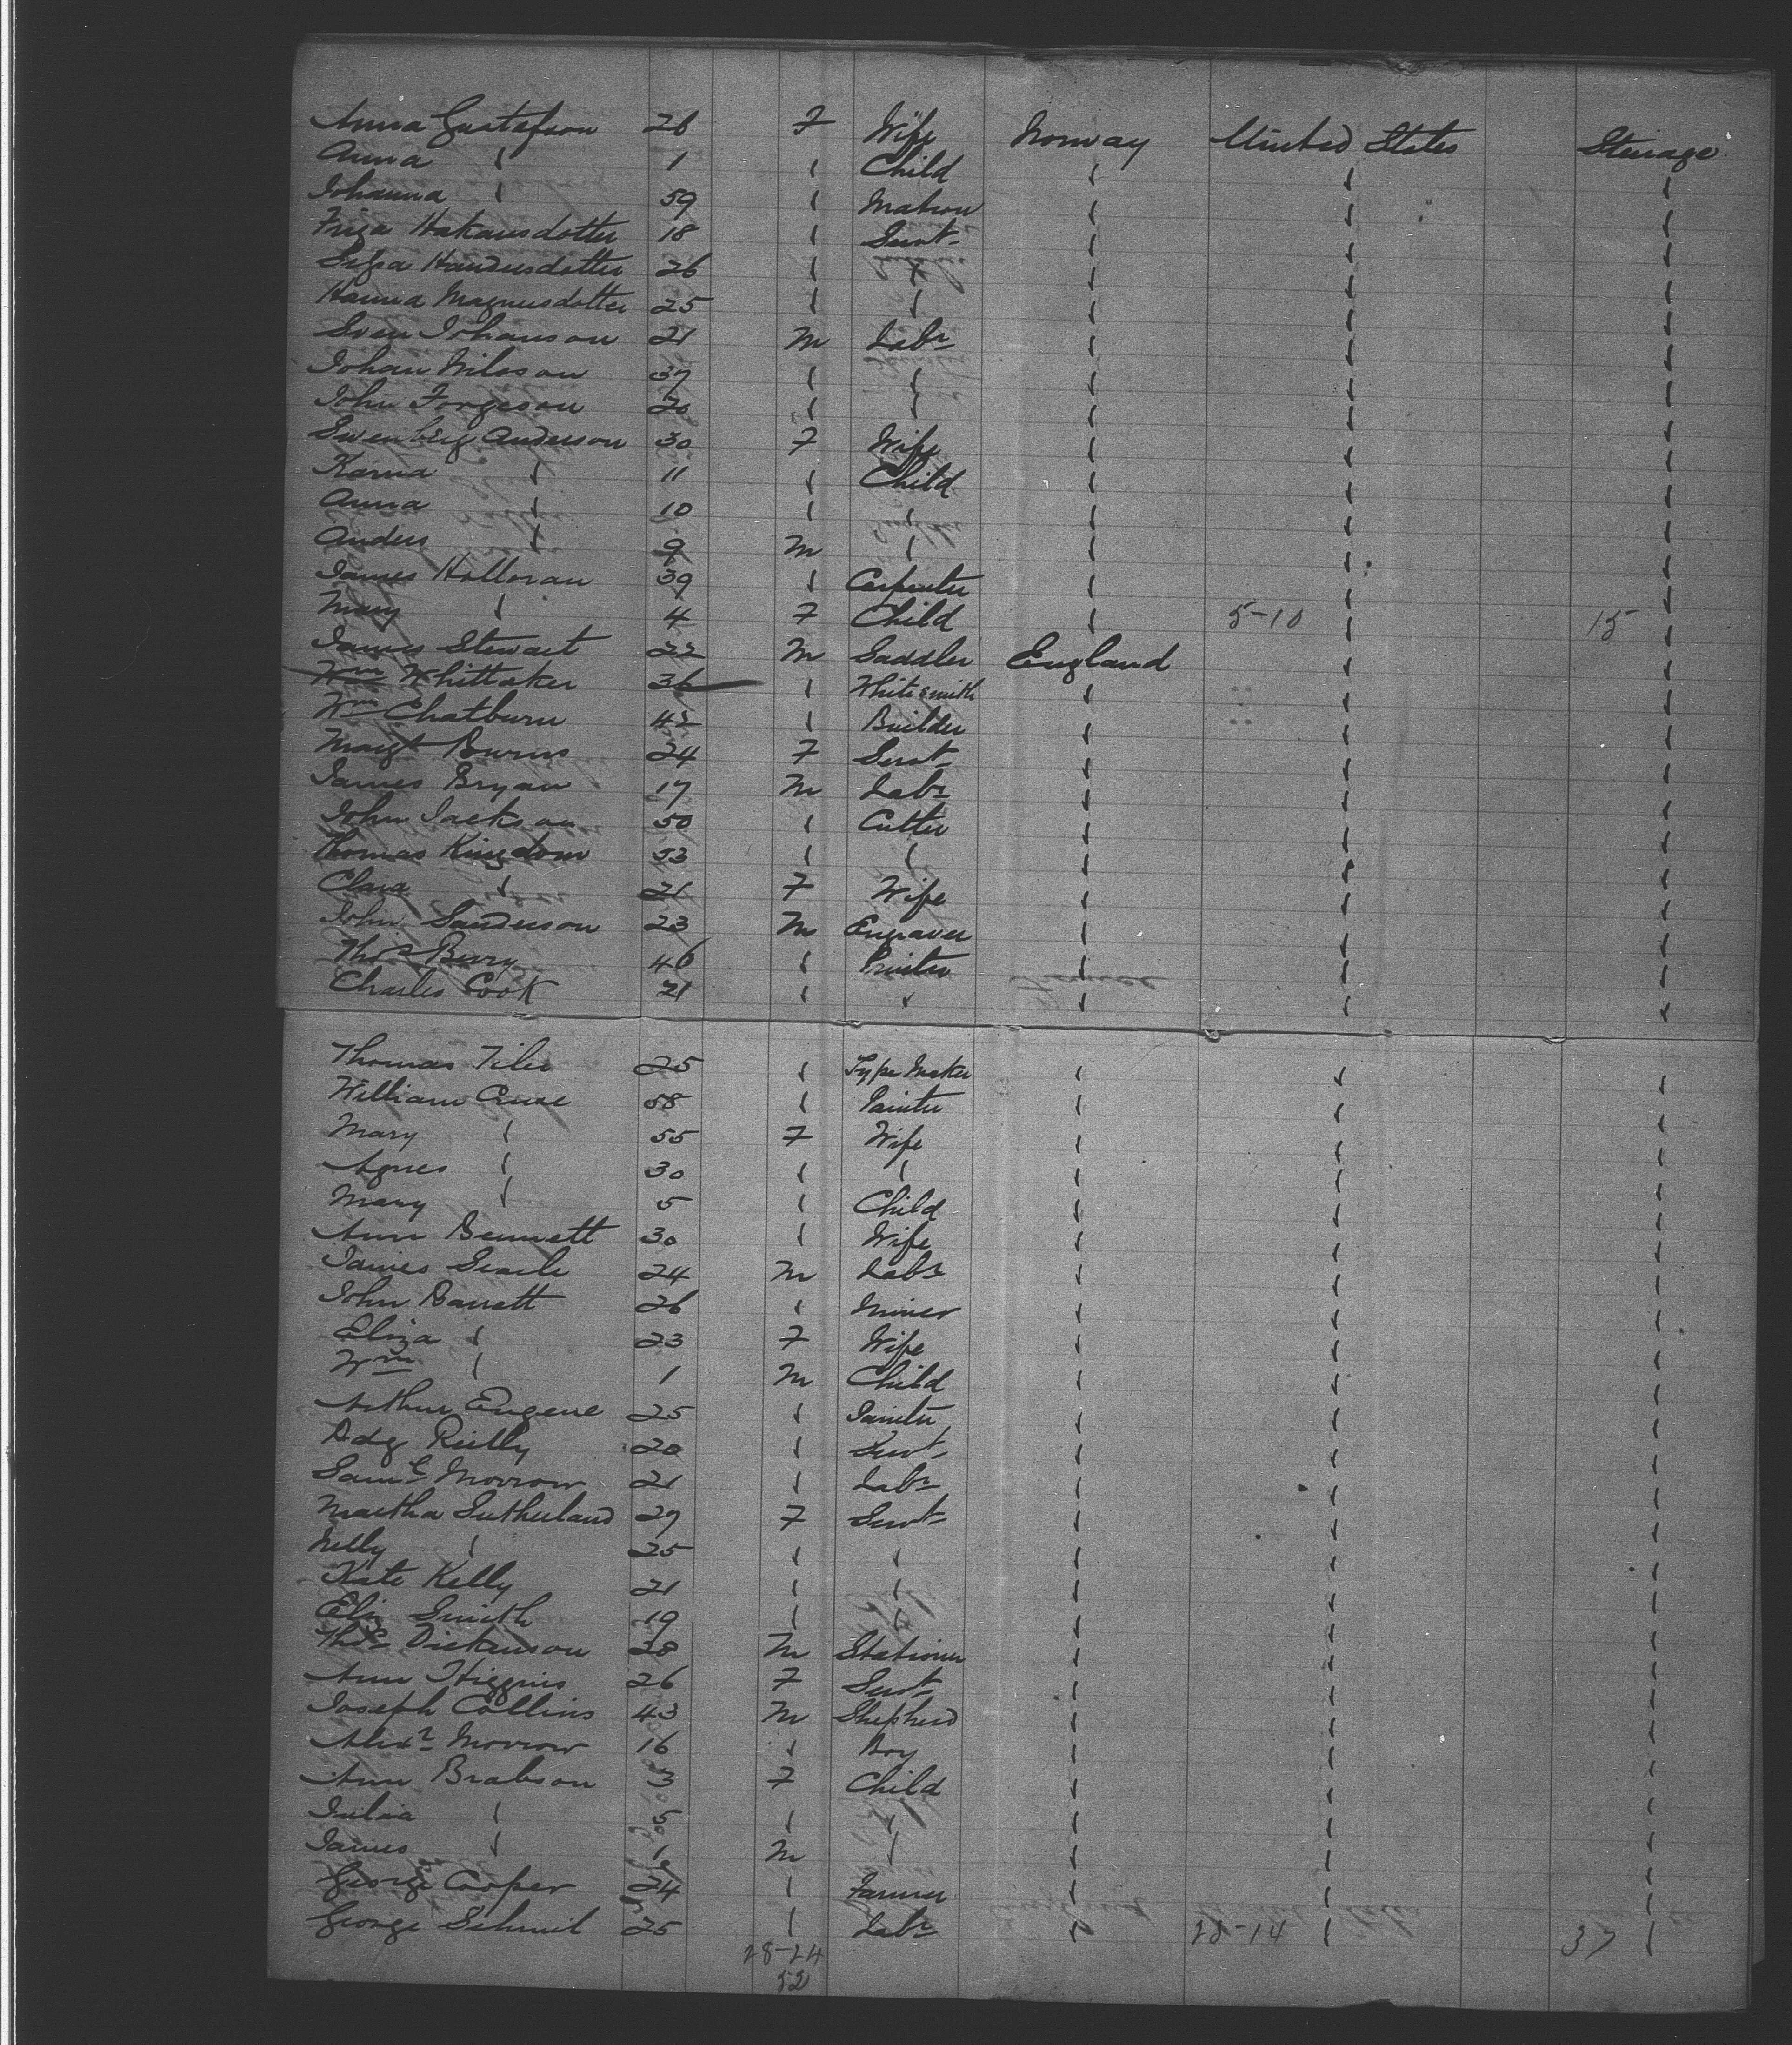 Anna Gustafson 26 F Wife Norway United States Steerage
Anna " 1 " Child " " "
Johanna " 59 " Matron " " "
Friza Hakansdotter 18 " Servt " " "
Handersdotter 26 " " " " "
Hanna Magnusdotter 25 " " " " "
Sven Johanson 21 M Labr " " "
Johan Nilsson 37 " " " " "
John Forgeson 20 " " " " "
Swenberg Anderson 30 F Wife " " "
Karna " 11 " Child " " "
Anna " 10 " " " " "
Anders " 9 M " " " "
James Holloran 39 " Carpenter " " "
Mary " 4 F Child " 5-10 " 15 "
James Stewart 22 M Saddler England " "
Wm Whittaker 36 " Whitesmith " " "
Wm Chatburn 42 " Builder " " "
Margt Burns 24 F Servt " " "
James Bryan 17 M Labr " " "
John Jackson 50 " Cutter " " "
Thomas Kingdom 53 " " " " "
Clara " 21 F Wife " " "
John Sanderson 23 M Engraver " " "
Thos Berry 46 " Printer " " "
Charles Cook 21 " " " " "
Thomas Tiler 25 " Type Maker " " "
William Cruse 58 " Painter " " "
Mary " 55 F Wife " " "
Agnes " 30 " " " " "
Mary " 5 " Child " " "
Ann Bennett 30 " Wife " " "
James Searle 24 M Labr " " "
John Barrett 26 " Miner " " "
Eliza " 23 F Wife " " "
Wm " 1 M Child " " "
Arthur Eugene 25 " Painter " " "
Reilly 20 " Servt " " "
Saml Morrow 21 " Labr " " "
Martha Sutherland 29 F Servt " " "
Nelly " 25 " " " " "
Kate Kelly 21 " " " " "
Eliz Smith 19 " " " " "
Thos Dickenson 28 M Stationer " " "
Ann Higgins 26 F Servt " " "
Joseph Collins 43 M Shepherd " " "
Alexr Morrow 16 " Boy " " "
Ann Brabson 3 F Child " " "
Julia " 5 " " " " "
James " 1 M " " " "
George Cooper 24 " Farmer " " "
George Schmil 25 " Labr " 28-14 " 37 "
28-24
52